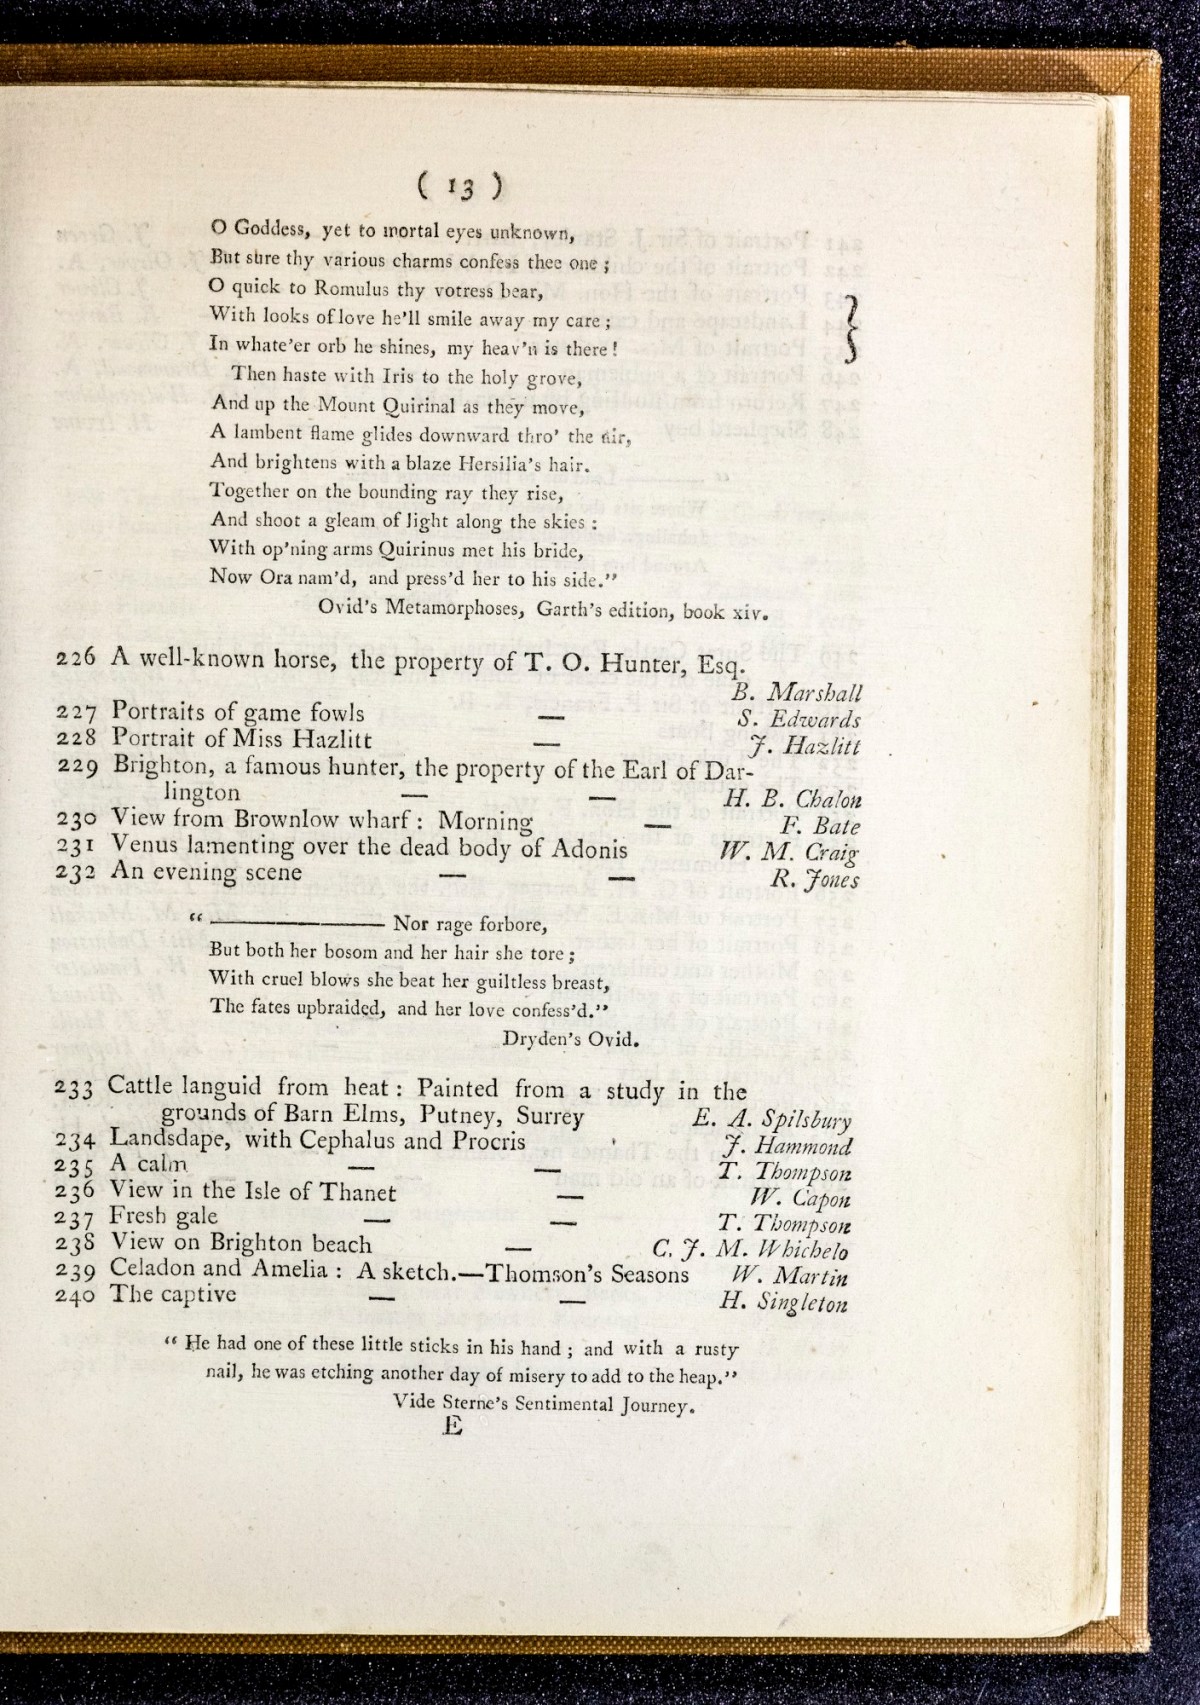 ( 13 )
O Goddess, yet to mortal eyes unknown,
But sure thy various charms confess thee one ;
O quick to Romulus thy votress bear,
With looks of love he'll smile away my care ;
In whate'er orb he shines, my heav'n is there !
}
Then haste with Iris to the holy grove,
And up the Mount Quirinal as they move,
A lambent flame glides downward thro' the air,
And brightens with a blaze Hersilia's hair.
Together on the bounding ray they rise,
And shoot a gleam of light along the skies :
With op'ning arms Quirinus met his bride,
Now Ora nam'd, and press'd her to his side."
Ovid's Metamorphoses, Garth's edition, book xiv.
226 A well-known horse, the property of T. O. Hunter, Esq.
B. Marshall
227 Portraits of game fowls — S. Edwards
228 Portrait of Miss Hazlitt — J. Hazlitt
229 Brighton, a famous hunter, the property of the Earl of Dar-
lington — — H. B. Chalon
230 View from Brownlow wharf : Morning — F. Bate
231 Venus lamenting over the dead body of Adonis W. M. Craig
232 An evening scene — — R. Jones
" ———— Nor rage forbore,
But both her bosom and her hair she tore ;
With cruel blows she beat her guiltless breast,
The fates upbraided, and her love confess'd."
Dryden's Ovid.
233 Cattle languid from heat : Painted from a study in the
grounds of Barn Elms, Putney, Surrey E. A. Spilsbury
234 Landsdape, with Cephalus and Procris J. Hammond
235 A calm — — T. Thompson
236 View in the Isle of Thanet — W. Capon
237 Fresh gale — — T. Thompson
238 View on Brighton beach — C. J. M. Whichelo
239 Celadon and Amelia : A sketch.—Thomson's Seasons W. Martin
240 The captive — — H. Singleton
" He had one of these little sticks in his hand ; and with a rusty
nail, he was etching another day of misery to add to the heap."
Vide Sterne's Sentimental Journey.
E